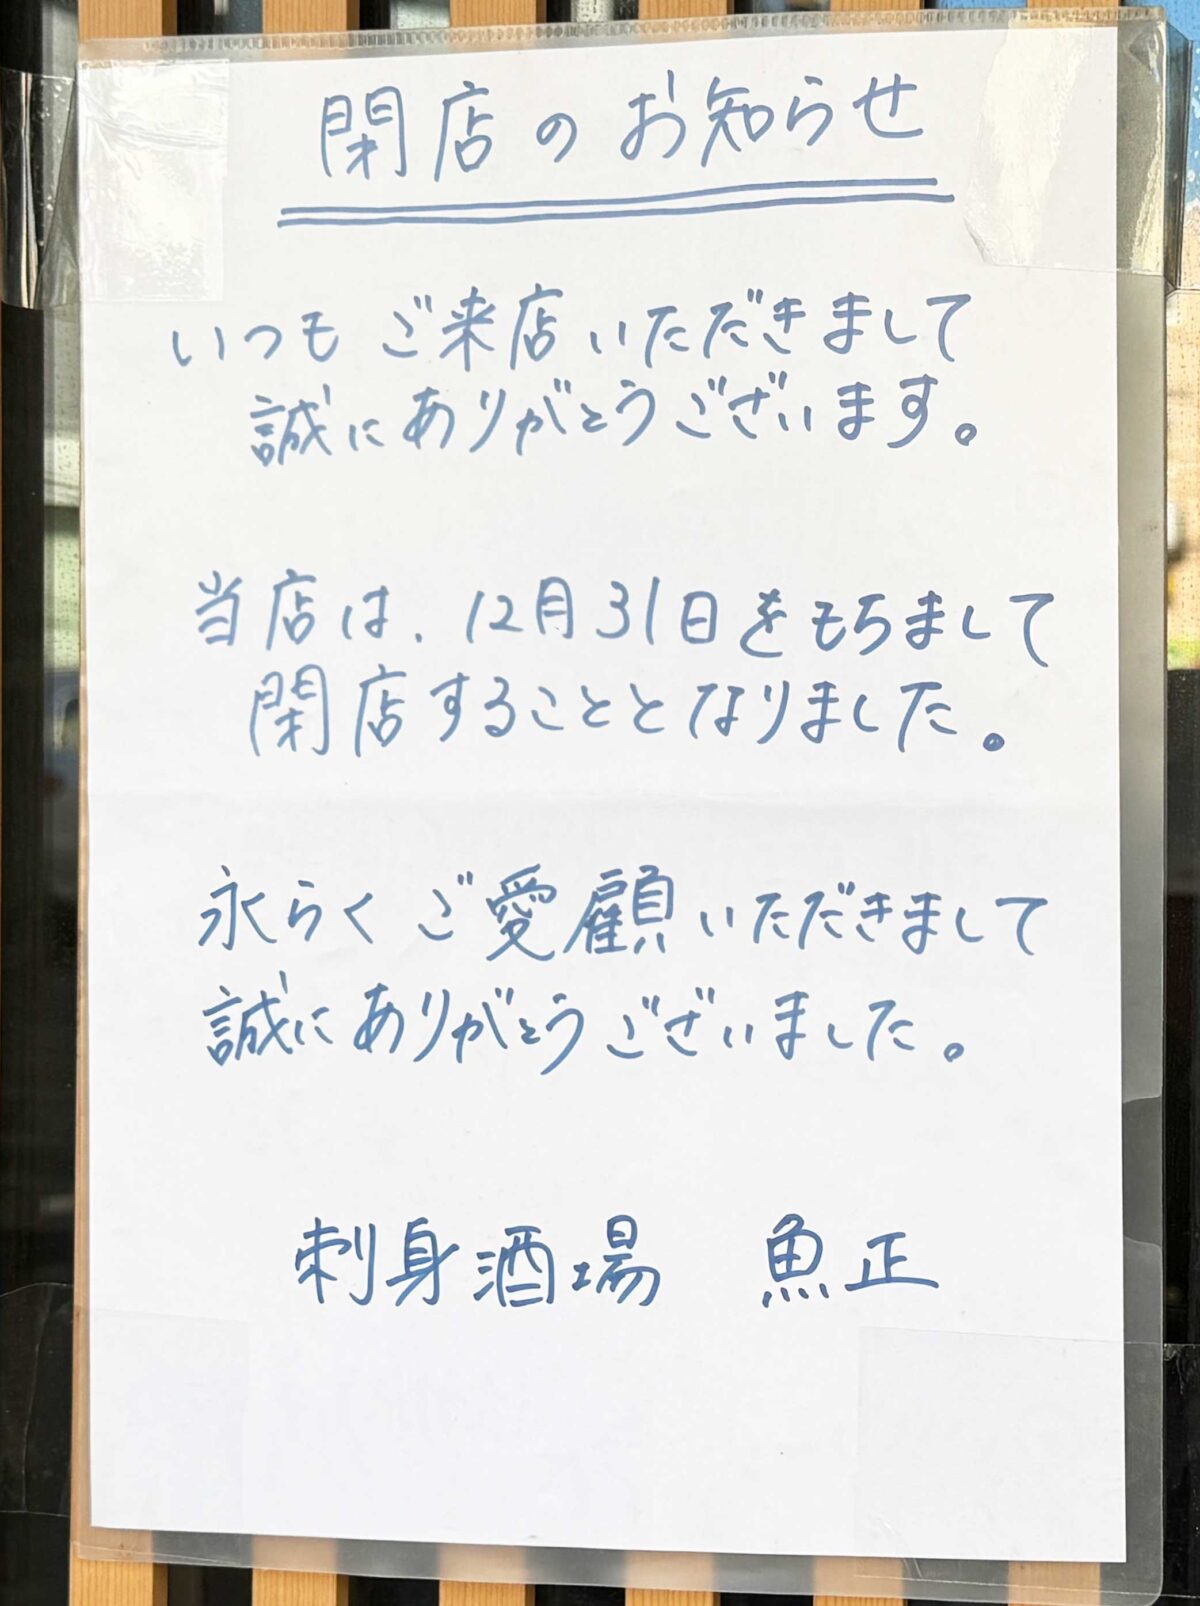 閉店のお知らせ
いつもご来店いただきまして
誠にありがとうございます。
当店は、12月31日をもちまして
閉店することとなりました。
永らくご愛顧いただきまして
誠にありがとうございました。
刺身酒場 魚正